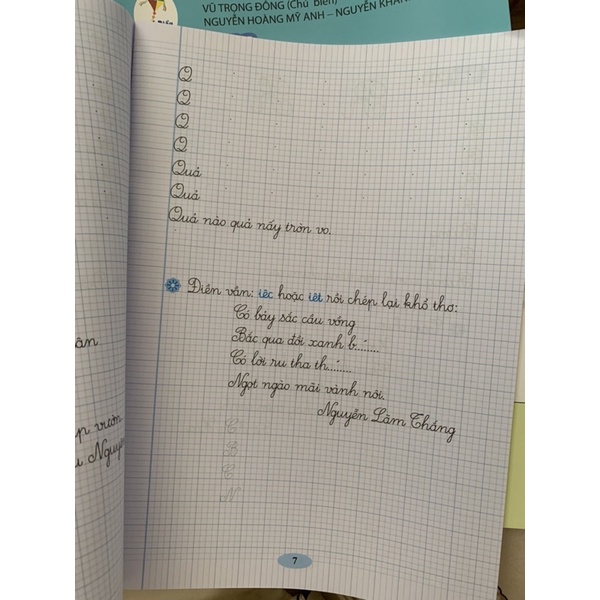 VŨ TRỌNG ĐÔNG (Chủ biên)
NGUYỄN HOÀNG MỸ ANH – NGUYỄN
Q
Q
Q
Q
Quả
Quả
Quả nào quả nấy tròn vo.
Điền vần: iêc hoặc iêt rồi chép lại khổ thơ:
Có bảy sắc cầu vồng
Bắc qua đồi xanh b.́......
Có lời ru tha th.́......
Ngọt ngào mãi vành nôi.
Nguyễn Lãm Thắng
C
B
C
N
ân
p vườn
Nguy
7